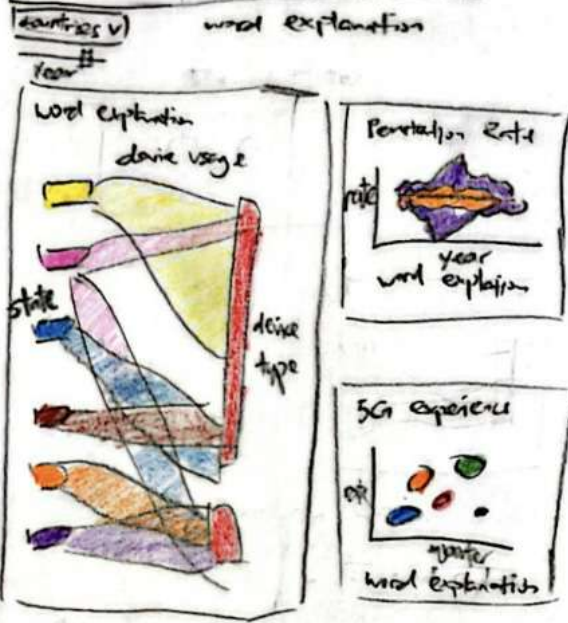 countries v
word explanation
year
word explanation
device usage
state
device
type
Penetration Rate
rate
year
word explaion
5G experience
word explanation